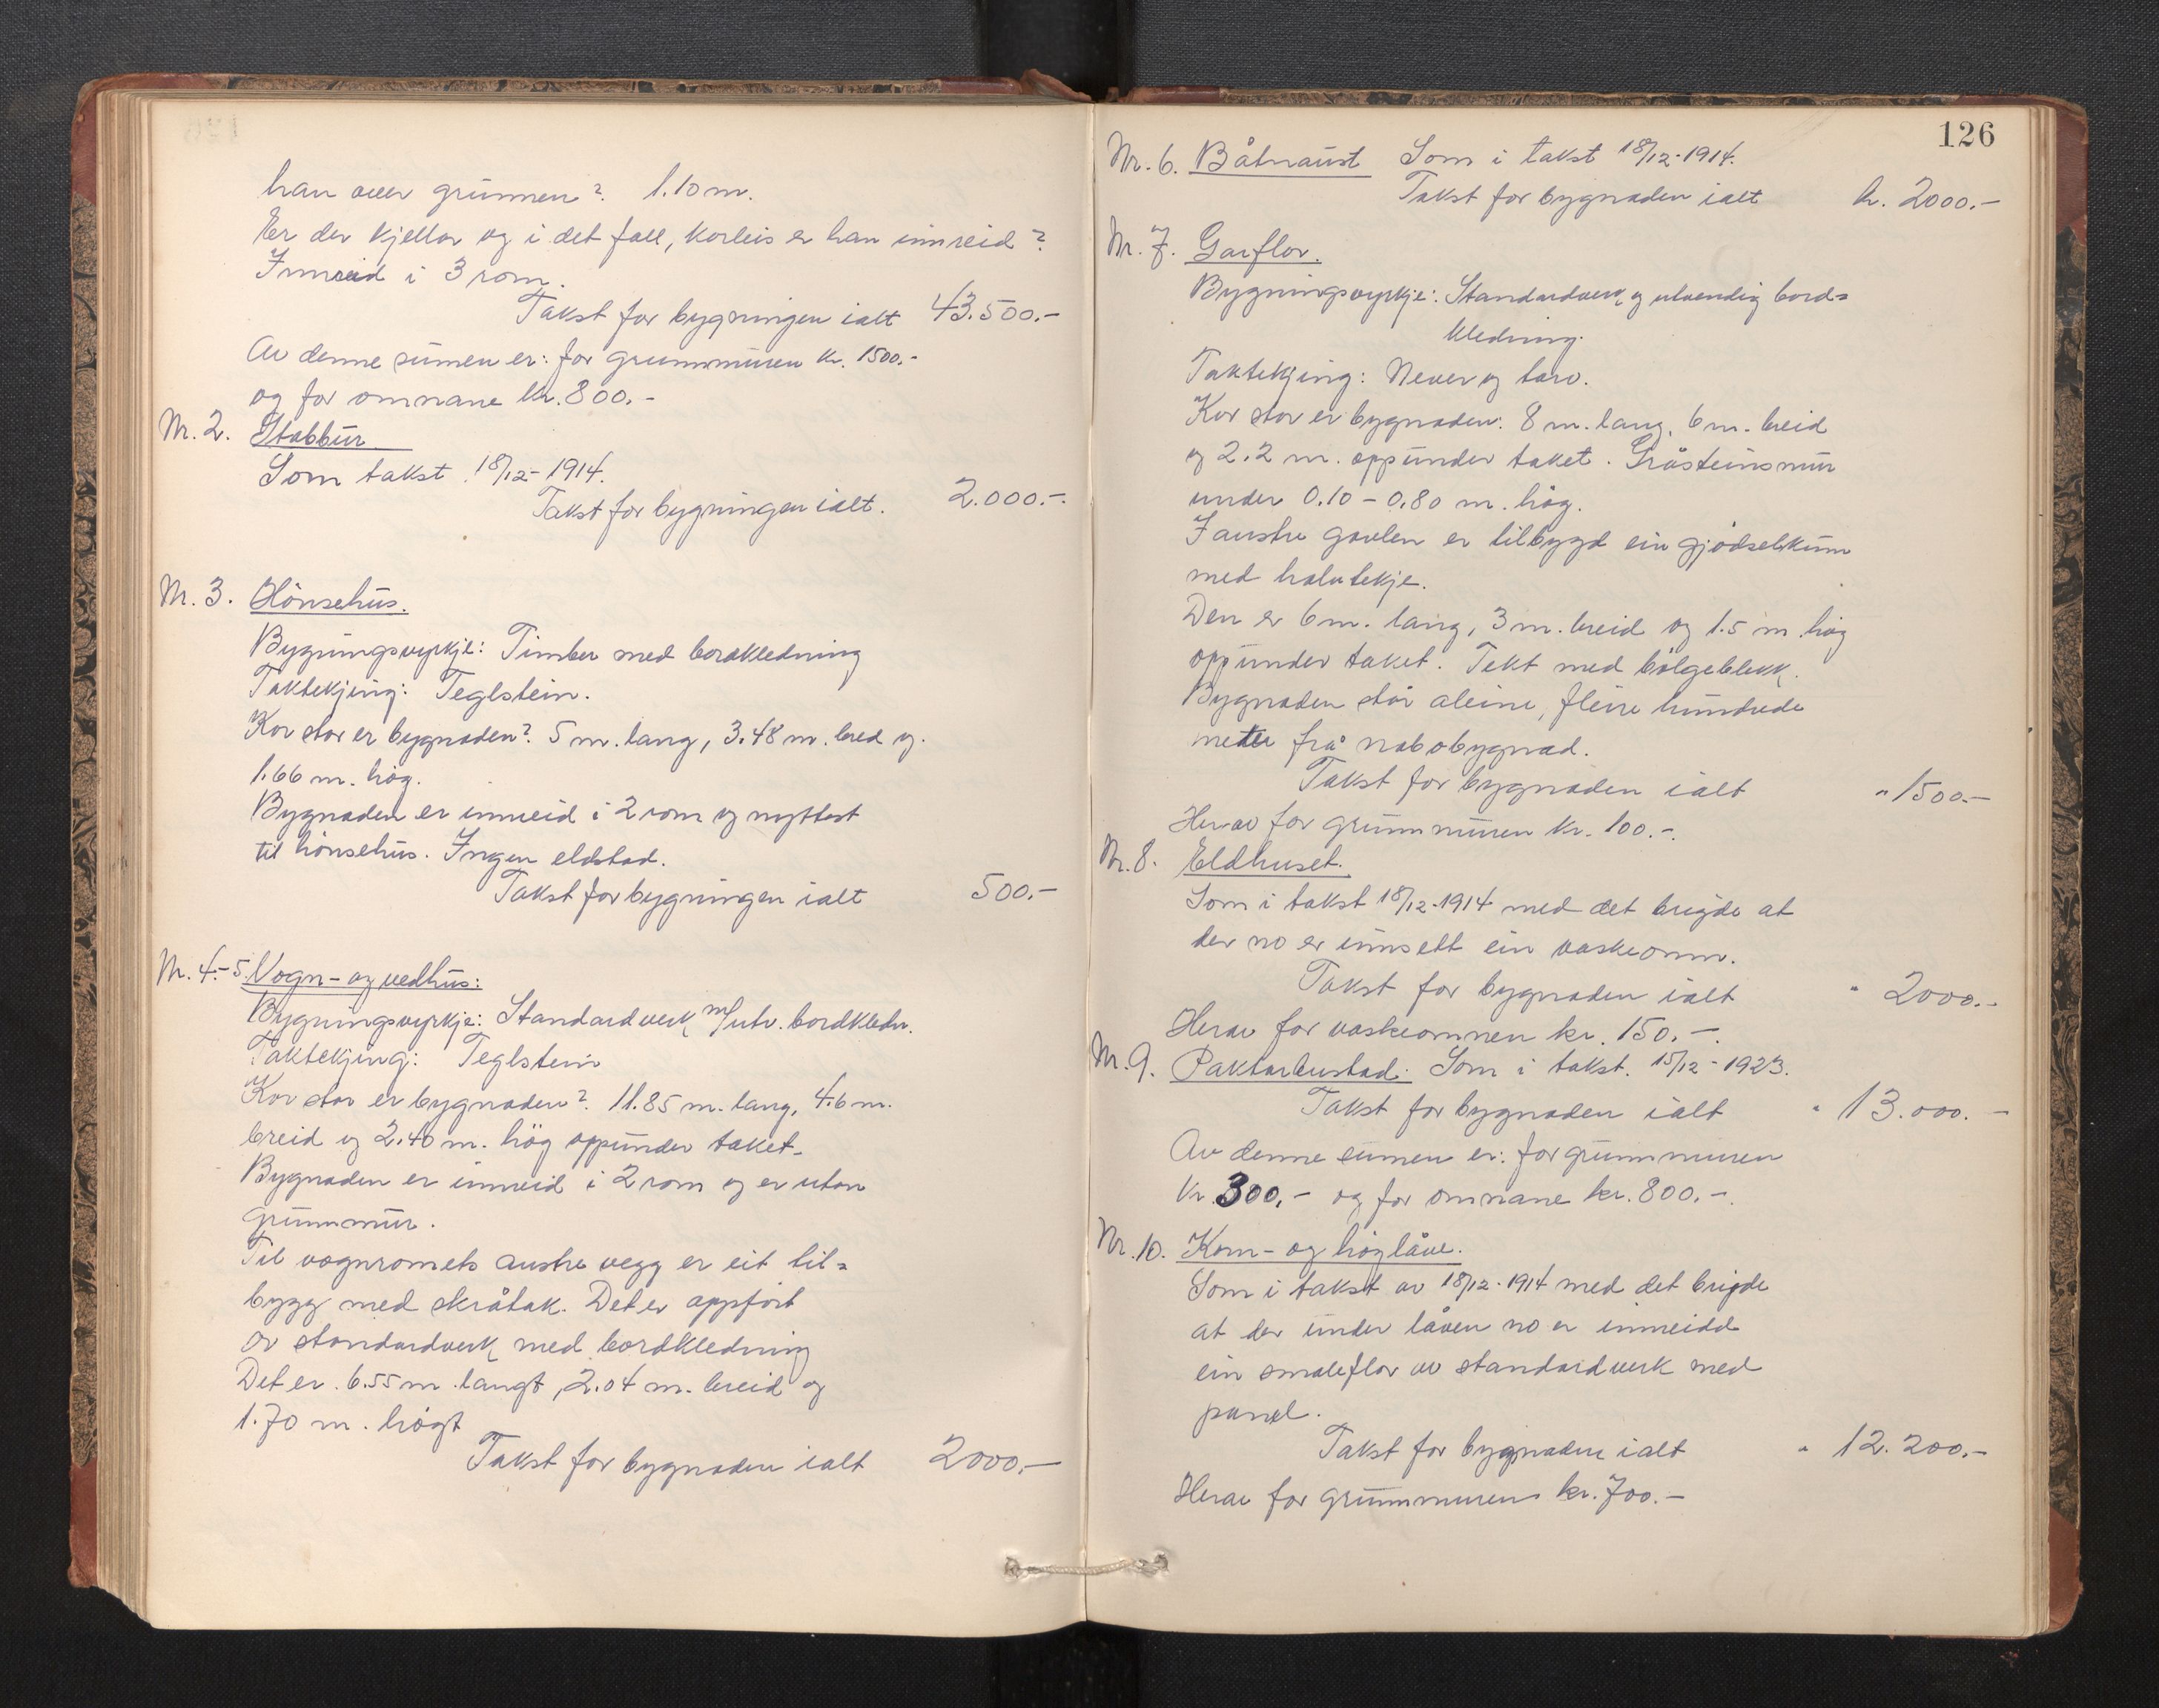 han over grunnen? 1.10 m.
Er der kjellar og i det fall, korleis er han innreid?
Innreid i 3 rom.
Takst for bygningen ialt 43.500.-
Av denne sumen er: for grunnmuren kr. 1500.-
og for omnane kr. 800.-
Nr. 2. Stabbur
Som takst 18/12-1914.
Takst for bygningen ialt. 2.000.-
Nr. 3. Hönsehus.
Bygningsvyrkje: Timber med bordkledning
Taktekjing: Teglstein.
Kor stor er bygnaden? 5 m. lang, 3.48 m. bred og
1.66 m. høg.
Bygnaden er innreid i 2 rom og nyttast
til hönsehus. Ingen eldstad.
Takst for bygningen ialt 500.-
Nr. 4.-5. Vogn- og vedhus:
Bygningsvyrkje: Standardverk m/utv. bordkledn.
Taktekjing: Teglstein
Kor stor er bygnaden? 11.85 m. lang, 4.6 m.
breid og 2.40 m. hög oppunder taket-
Bygnaden er innreid i 2 rom og er utan
grunnmur.
Til vognromets austre vegg er eit til=
bygg med skråtak. Det er oppfört
av standardverk med bordkledning
Det er 6.55 m. langt, 2.04 m. breid og
1.70 m. högt
Takst for bygnaden ialt 2000.-
126
Nr. 6. Båtnaust Som i takst 18/12-1914.
Takst for bygnaden ialt kr. 2000.-
Nr. 7. Garflor.
Bygningsvyrkje: Standardverk og utvendig bord=
kledning.
Taktekjing: Never og torv.
Kor stor er bygnaden: 8 m. lang, 6 m. breid
og 2.2 m. oppunder taket. Gråsteinsmur
under 0.10 - 0.80 m. høg.
I austre gavlen er tilbygd ein gjødselkum
med halvtekje.
Den er 6 m. lang, 3 m. breid og 1.5 m høg
oppunder taket. Tekt med bølgeblekk.
Bygnaden står aleine, fleire hundrede
meter frå nabobygnad.
Takst for bygnaden ialt " 1500.-
Herav for grunnmuren kr. 100.-.
Nr. 8. Eldhuset.
Som i takst 18/12-1914 med det brigde at
der no er innsett ein vaskeomn.
Takst for bygnaden ialt " 2000.-
Herav for vaskeomnen kr. 150.-.
Nr. 9. Paktarbustad. Som i takst. 15/12-1923.
Takst for bygnaden ialt " 13.000.-
Av denne sumen er: for grunnmuren
kr. 300.- og for omnane kr. 800.-.
Nr. 10. Korn- og høylåve.
Som i takst av 18/12-1914 med det brigde
at der under låven no er innreidd
ein smaleflor av standardverk med
panel.
Takst for bygnaden ialt " 12.200.-
Herav for grunnmuren kr. 700.-